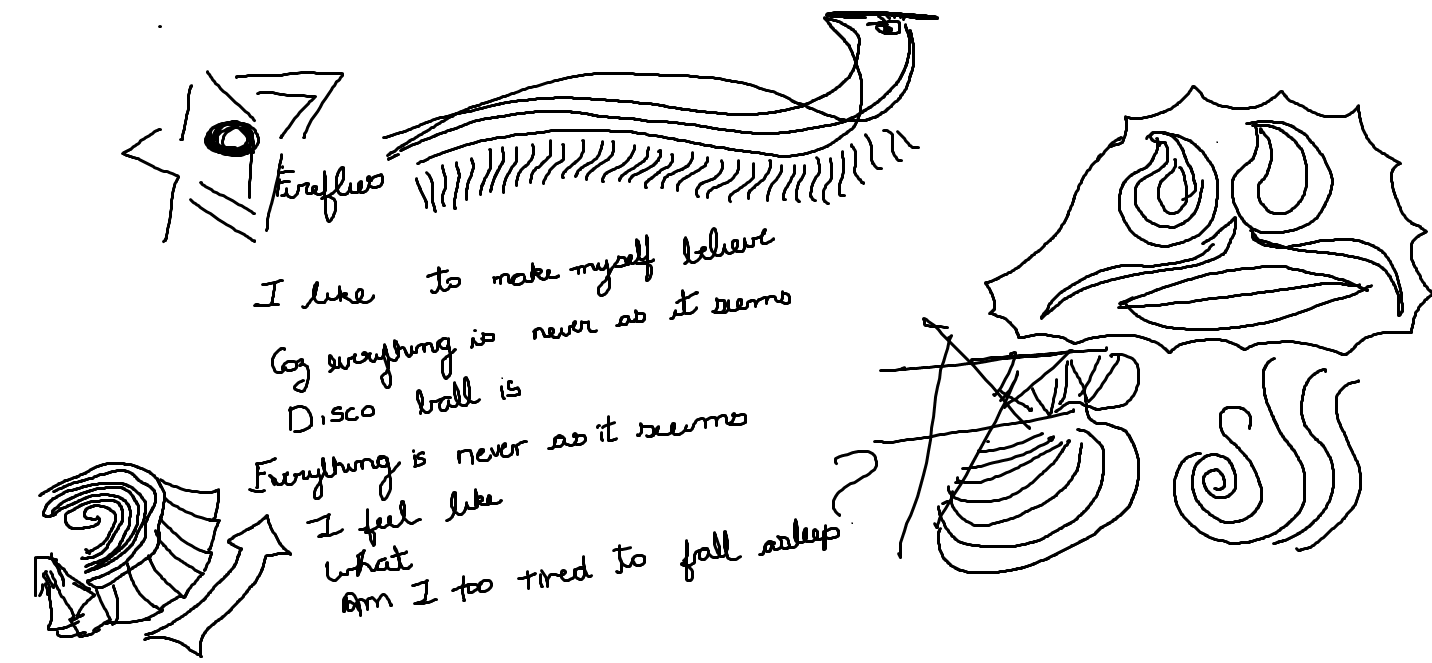 Fireflies
I like to make myself believe
Coz everything is never as it seems
Disco ball is
Everything is never as it seems
I feel like
what
Am I too tired to fall asleep
?